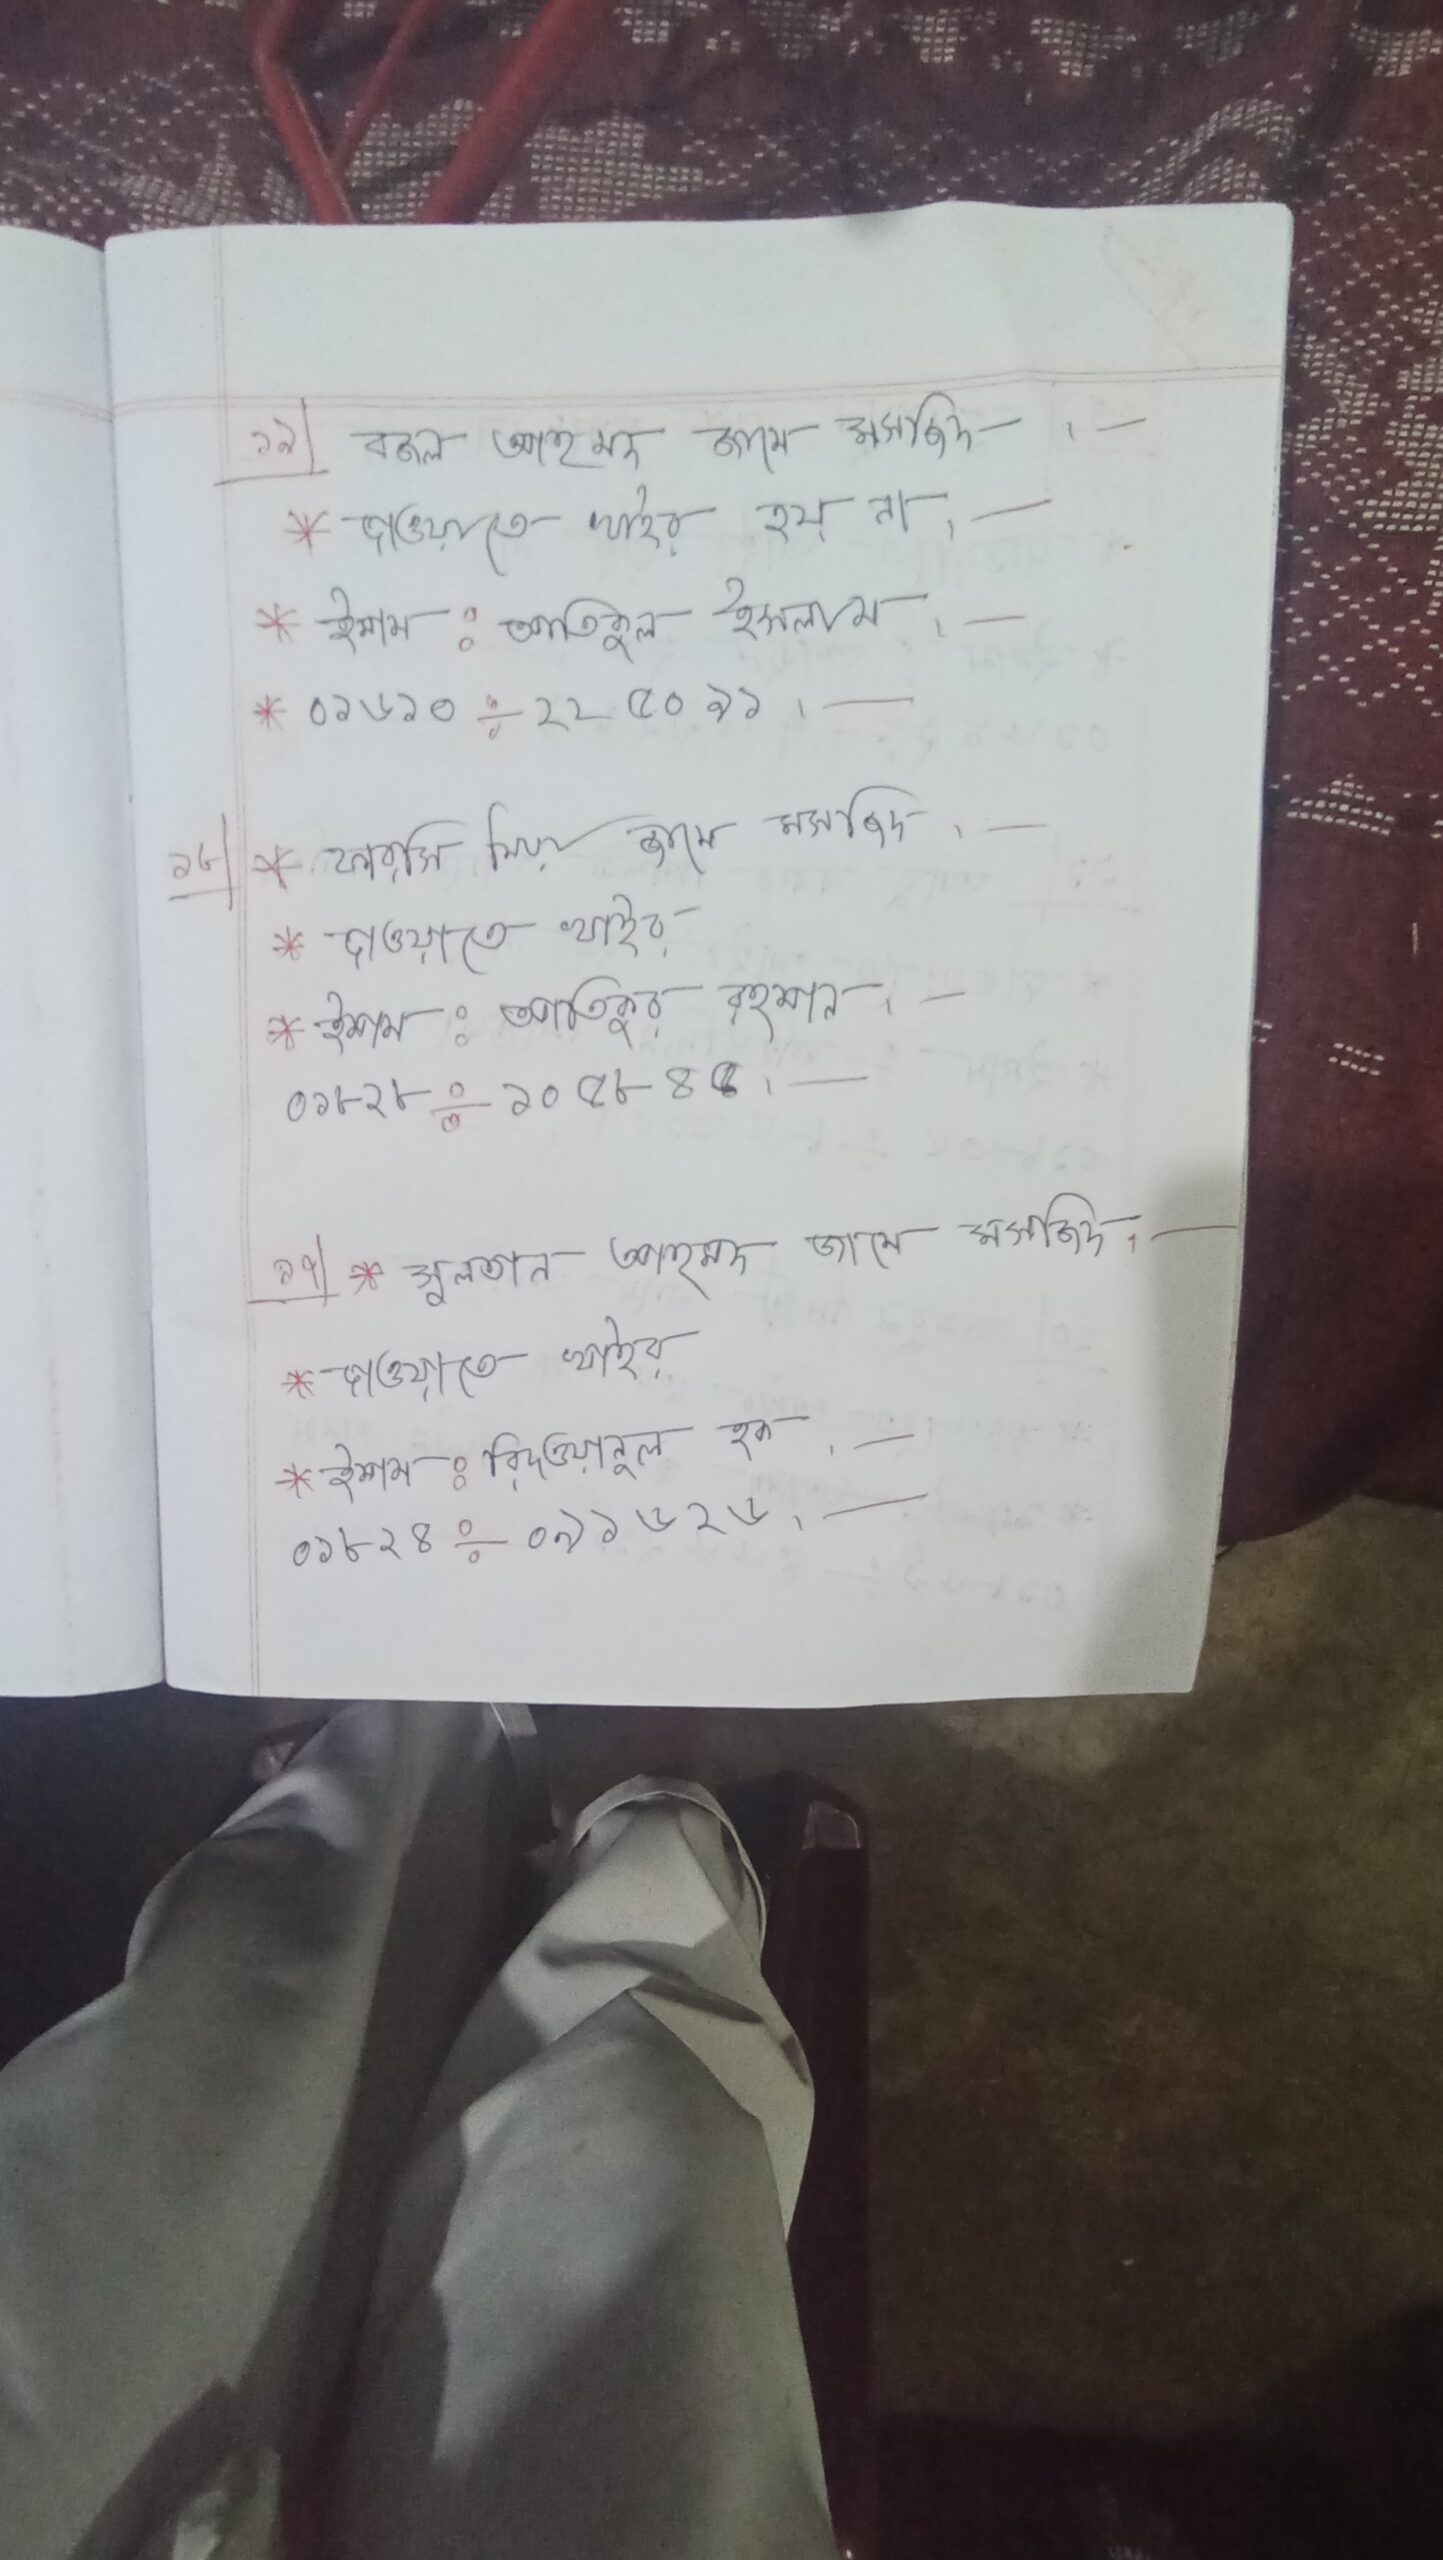 ১৯| বজল আহমদ জামে মসজিদ ।—
* দাওয়াতে খাইর হয় না ।—
* ইমাম : আতিকুল ইসলাম ।—
* ০১৬১০ ÷ ২২৫০৯১ ।—
১৮| * ফারসি মিয়া জামে মসজিদ ।—
* দাওয়াতে খাইর
* ইমাম : আতিকুর রহমান ।—
০১৮২৮ ÷ ১০৫৮৪৫ ।—
১৭| * সুলতান আহমদ জামে মসজিদ ।—
* দাওয়াতে খাইর
* ইমাম : রিদওয়ানুল হক ।—
০১৮২৪ ÷ ০৯১৬২৬ ।—